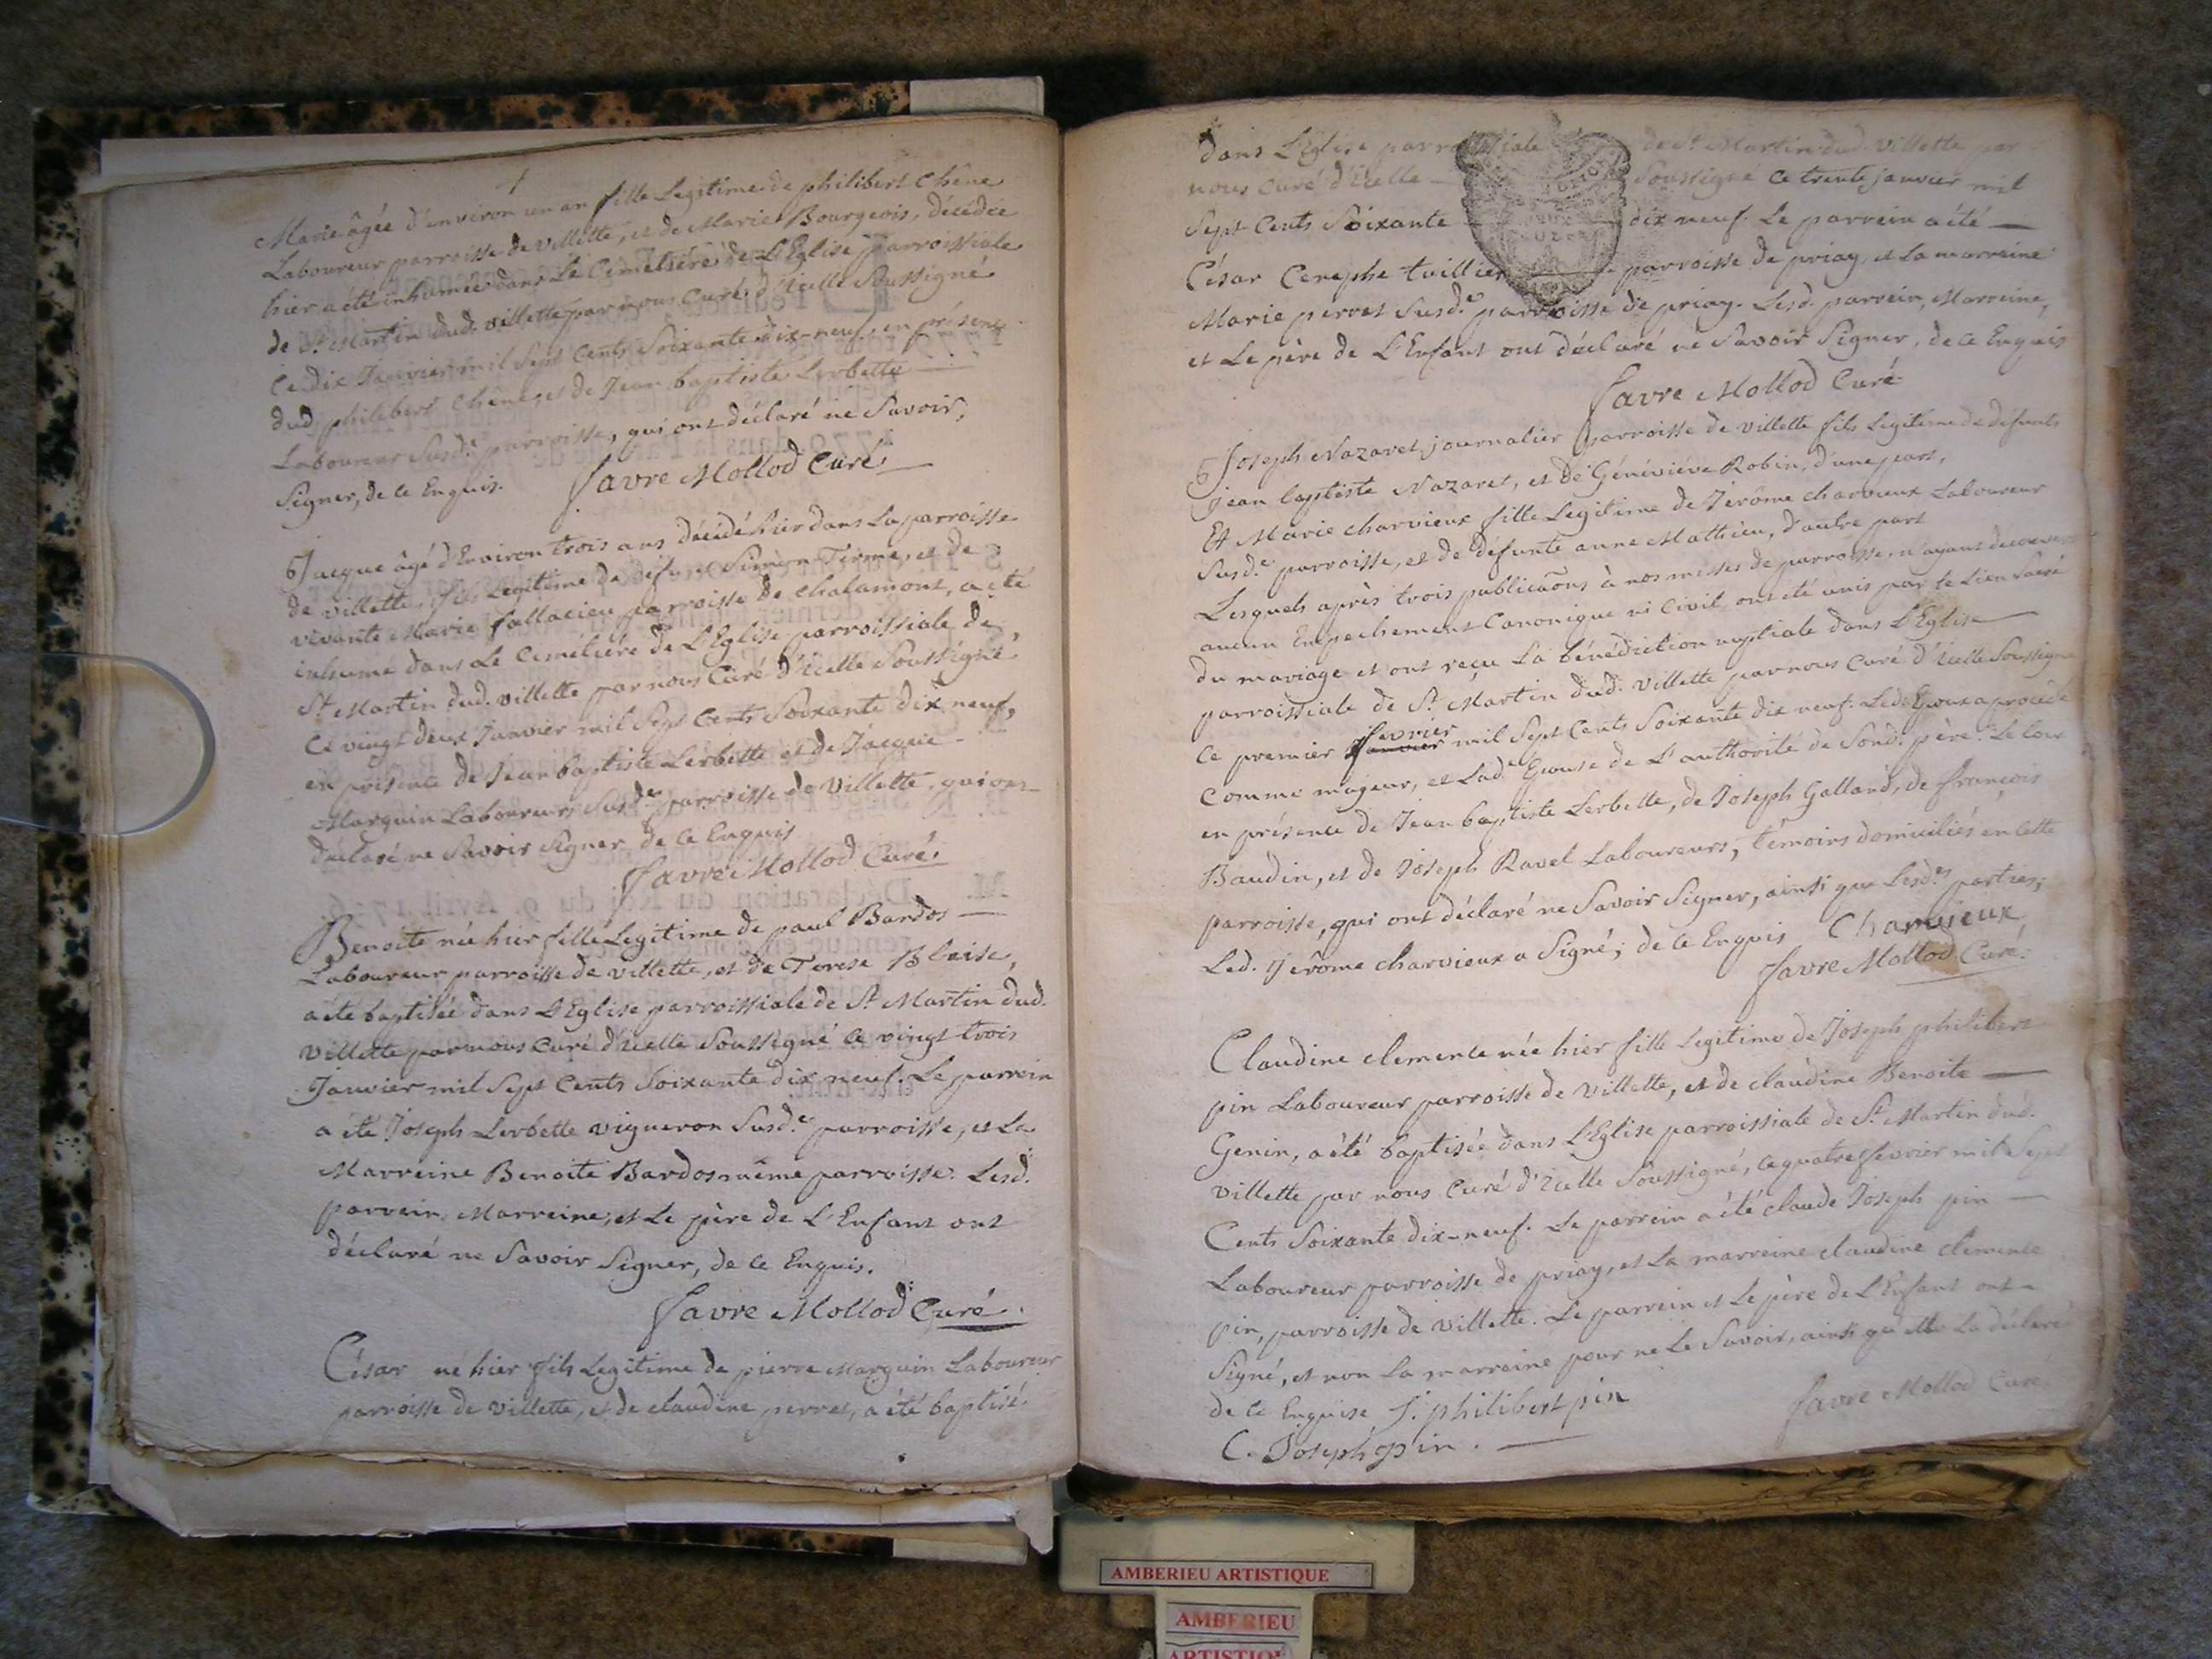 Marie âgée d'environ un an fille Legitime de philibert Chêne
Laboureur parroisse de villette, et de Marie Bourgeois, décédée
hier a été inhumée dans Le Cimetiere de L'Eglise parroissiale
de St Martin dud. villette par nous Curé d'icelle Soussigné
Ce dix Janvier mil Sept Cents Soixante dix-neuf, en présence
dud. philibert Chêne, et de Jean baptiste Lerbette
Laboureur Susd.e parroisse, qui ont déclaré ne Savoir,
Signer, de ce Enquis. favre Mollod Curé
Jacque âgé d'Environ trois ans décédé hier dans La parroisse
de villette, fils Legitime de défunt Simeon Firme, et de
vivante Marie fallacieu parroisse de chalamont, a été
inhumé dans Le Cimétiére de L'Eglise parroissiale de
St Martin dud. villette par nous Curé d'icelle Soussigné
Ce vingt deux Janvier mil Sept Cents Soixante dix neuf,
en présence de Jean baptiste Lerbette et de Jacque
Marguin Laboureurs Susd.e parroisse de villette, qui ont
déclaré ne Savoir Signer de ce Enquis
favre Mollod Curé.
Benoite née hier fille Legitime de paul Bardos
Laboureur parroisse de villette, et de Terese Blaise,
a été baptisée dans L'Eglise parroissiale de St Martin dud.
villette par nous Curé d'icelle Soussigné ce vingt trois
Janvier mil Sept Cents Soixante dix neuf. Le parrein
a été Joseph Lerbette vigneron Susd.e parroisse, et La
Marreine Benoite Bardos même parroisse. Lesd.
parrein, Marreine, et Le père de L'Enfant ont
déclaré ne Savoir Signer, de ce Enquis.
favre Mollod Curé.
César né hier fils Legitime de pierre Marguin Laboureur
parroisse de villette, et de claudine perret, a été baptisé
dans L'Eglise parroissiale de St Martin dud. villette par
nous Curé d'icelle Soussigné Ce trente janvier mil
Sept Cents Soixante dix neuf. Le parrein a été
César tuillier parroisse de priay, et La marreine
Marie perret Susd.e parroisse de priay. Lesd. parrein, Marreine,
et Le père de L'Enfant ont déclaré ne Savoir Signer, de ce Enquis
favre Mollod Curé
Joseph Nazaret journalier parroisse de villette fils Legitime de défunts
Jean baptiste Nazaret, et de Généviéve Robin, d'une part,
Et Marie charvieux fille Legitime de Jerôme charvieux Laboureur
Susd.e parroisse, et de défunte anne Mathieu, d'autre part
Lesquels après trois publicaõns à nos messes de parroisse, n'ayant decouvert
aucun Empechement Canonique ni Civil, ont été unis par Le Lien Sacré
du mariage et ont reçu La bénédiction nuptiale dans L'Eglise
parroissiale de St Martin dud. villette par nous Curé d'icelle Soussigné
fevrier
Ce premier Janvier mil Sept Cents Soixante dix neuf. Led. Epoux a procédé
Comme majeur, et Lad.e Epouse de L'authorité de Sond. père. Le tout
en présence de Jean baptiste Lerbette, de Joseph Galland, de françois
Baudin, et de Joseph Ravel Laboureurs, témoins domiciliés en cette
parroisse, qui ont déclaré ne Savoir Signer, ainsi que Lesd.es parties;
Led. Jerôme charvieux a Signé; de ce Enquis Charvieux
favre Mollod Curé.
Claudine clemence née hier fille Legitime de Joseph philibert
pin Laboureur parroisse de villette, et de claudine Benoite
Genin, a été baptisée dans L'Eglise parroissiale de St Martin dud.
villette par nous Curé d'icelle Soussigné, ce quatre fevrier mil Sept
Cents Soixante dix-neuf. Le parrein a été claude Joseph pin
Laboureur parroisse de priay, et La marreine claudine clemence
pin, parroisse de villette. Le parrein et Le père de L'Enfant ont
Signé, et non La marreine pour ne Le Savoir, ainsi qu'elle La déclaré
de ce Enquise J. philibert pin favre Mollod Curé
C. Joseph pin.
AMBERIEU ARTISTIQUE
AMBERIEU
ARTISTIQUE